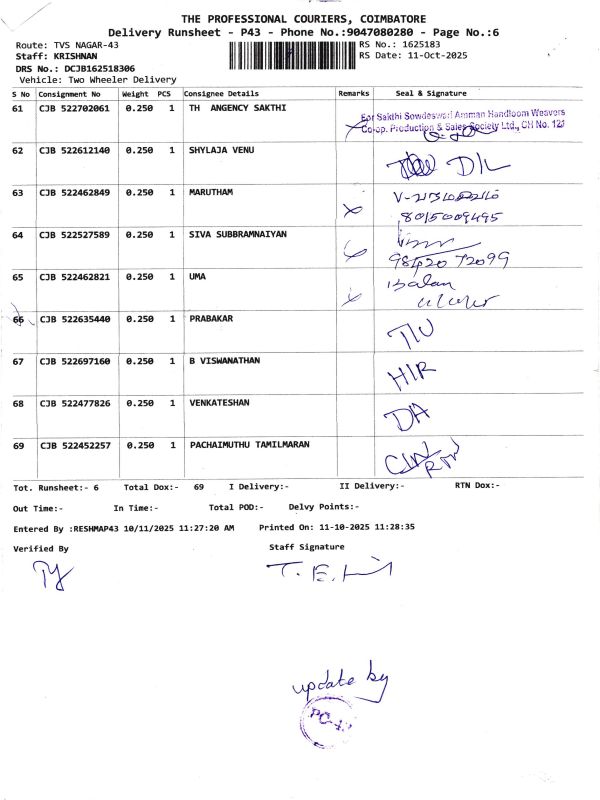 THE PROFESSIONAL COURIERS, COIMBATORE
Delivery Runsheet - P43 - Phone No.:9047080280 - Page No.:6
Route: TVS NAGAR-43 RS No.: 1625183
Staff: KRISHNAN RS Date: 11-Oct-2025
DRS No.: DCJB162518306
Vehicle: Two Wheeler Delivery
S No Consignment No Weight PCS Consignee Details Remarks Seal & Signature
61 CJB 522702061 0.250 1 TH ANGENCY SAKTHI
For Sakthi Sowdeswari Amman Handloom Weavers
Co-op. Production & Sales Society Ltd., CH No. 123
62 CJB 522612140 0.250 1 SHYLAJA VENU
D/L
63 CJB 522462849 0.250 1 MARUTHAM
8015009495
64 CJB 522527589 0.250 1 SIVA SUBBRAMNAIYAN
98420 72099
65 CJB 522462821 0.250 1 UMA
Balan
66 CJB 522635440 0.250 1 PRABAKAR
67 CJB 522697160 0.250 1 B VISWANATHAN
H/R
68 CJB 522477826 0.250 1 VENKATESHAN
DA
69 CJB 522452257 0.250 1 PACHAIMUTHU TAMILMARAN
Tot. Runsheet:- 6 Total Dox:- 69 I Delivery:- II Delivery:- RTN Dox:-
Out Time:- In Time:- Total POD:- Delvy Points:-
Entered By :RESHMAP43 10/11/2025 11:27:20 AM Printed On: 11-10-2025 11:28:35
Verified By Staff Signature
update by
PC-43